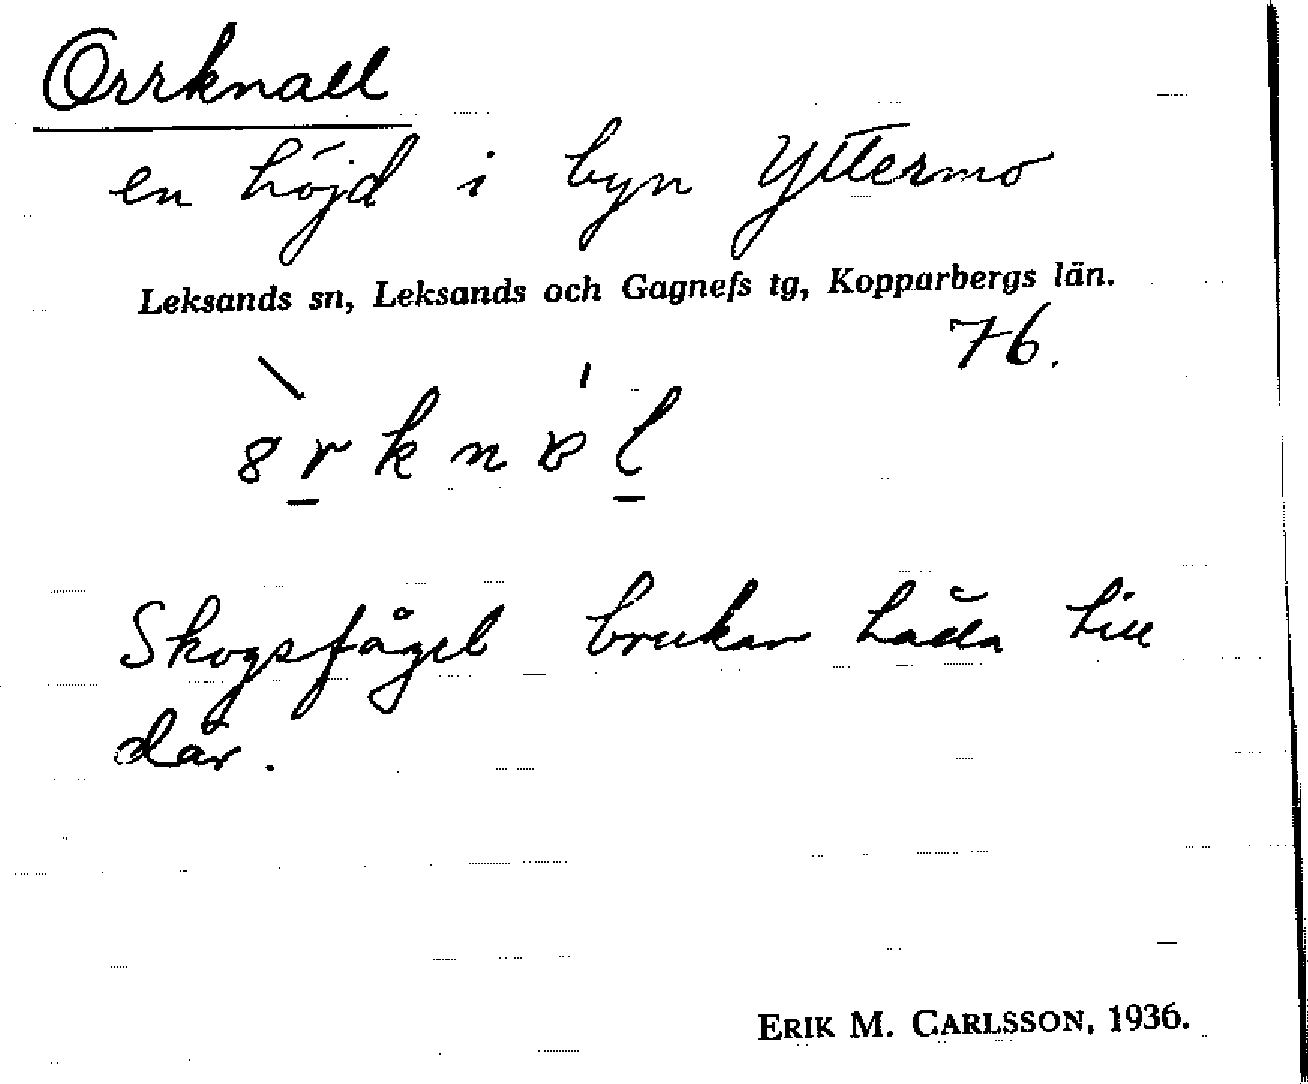 Orrknall
en höjd i byn Yttermo
Leksands sn, Leksands och Gagnefs tg, Kopparbergs län.
76.
Skogsfågel brukar hålla till
där.
ERIK M. CARLSSON, 1936.